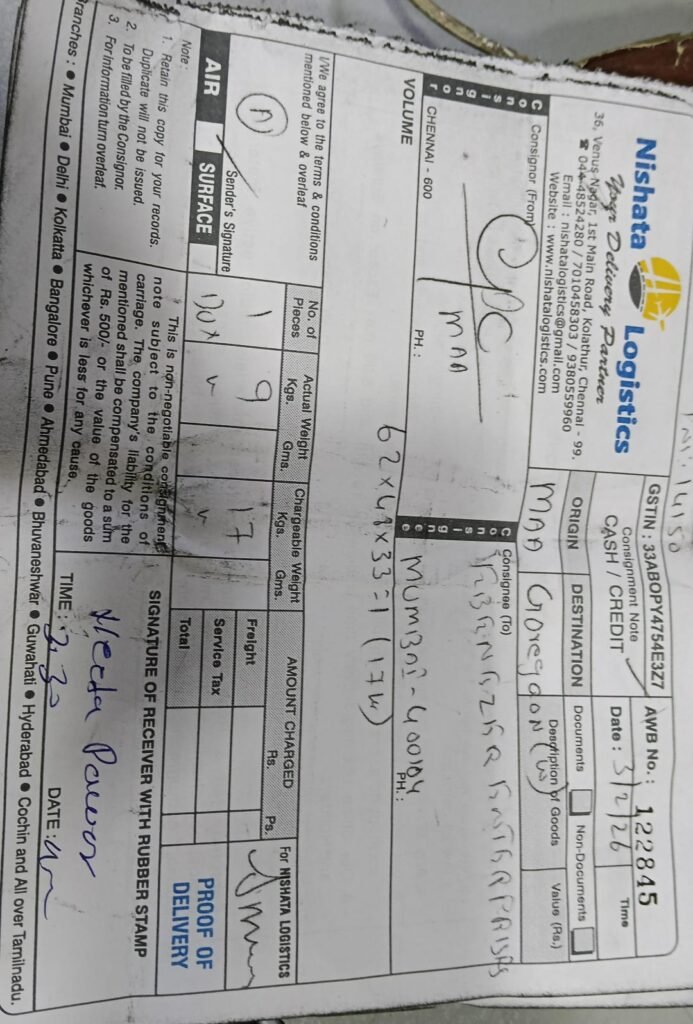 INV: 14150
Nishata Logistics
Your Delivery Partner
36, Venus Nagar, 1st Main Road, Kolathur, Chennai - 99.
☎ 044-48524280 / 7010458303 / 9380559960
Email : nishatalogistics@gmail.com
Website : www.nishatalogistics.com
GSTIN : 33ABOPY4754E3Z7
Consignment Note
CASH / CREDIT
AWB No. : 122845
Date : 3/2/26
Time
ORIGIN
MAA
DESTINATION
Goregaon (W)
Documents
Non-Documents
Description of Goods
Value (Rs.)
Consignor
Consignor (From)
CPC
MAA
CHENNAI - 600
PH. :
Consignee
Consignee (To)
MUMBAI - 400104
PH. :
VOLUME
62×41×33=1 (17K)
I/We agree to the terms & conditions
mentioned below & overleaf
Sender's Signature
AIR
SURFACE
No. of Pieces
Actual Weight
Kgs. Gms.
Chargeable Weight
Kgs. Gms.
1
9
17
BOX
AMOUNT CHARGED
Rs. Ps.
Freight
Service Tax
Total
For NISHATA LOGISTICS
PROOF OF
DELIVERY
Note :
1. Retain this copy for your records.
Duplicate will not be issued.
2. To be filled by the Consignor.
3. For Information turn overleaf.
This is non-negotiable consignment
note subject to the conditions of
carriage. The company's liability for the
mentioned shall be compensated to a sum
of Rs. 500/- or the value of the goods
whichever is less for any cause.
SIGNATURE OF RECEIVER WITH RUBBER STAMP
TIME : 2.30
DATE :
Branches : ● Mumbai ● Delhi ● Kolkatta ● Bangalore ● Pune ● Ahmedabad ● Bhuvaneshwar ● Guwahati ● Hyderabad ● Cochin and All over Tamilnadu.